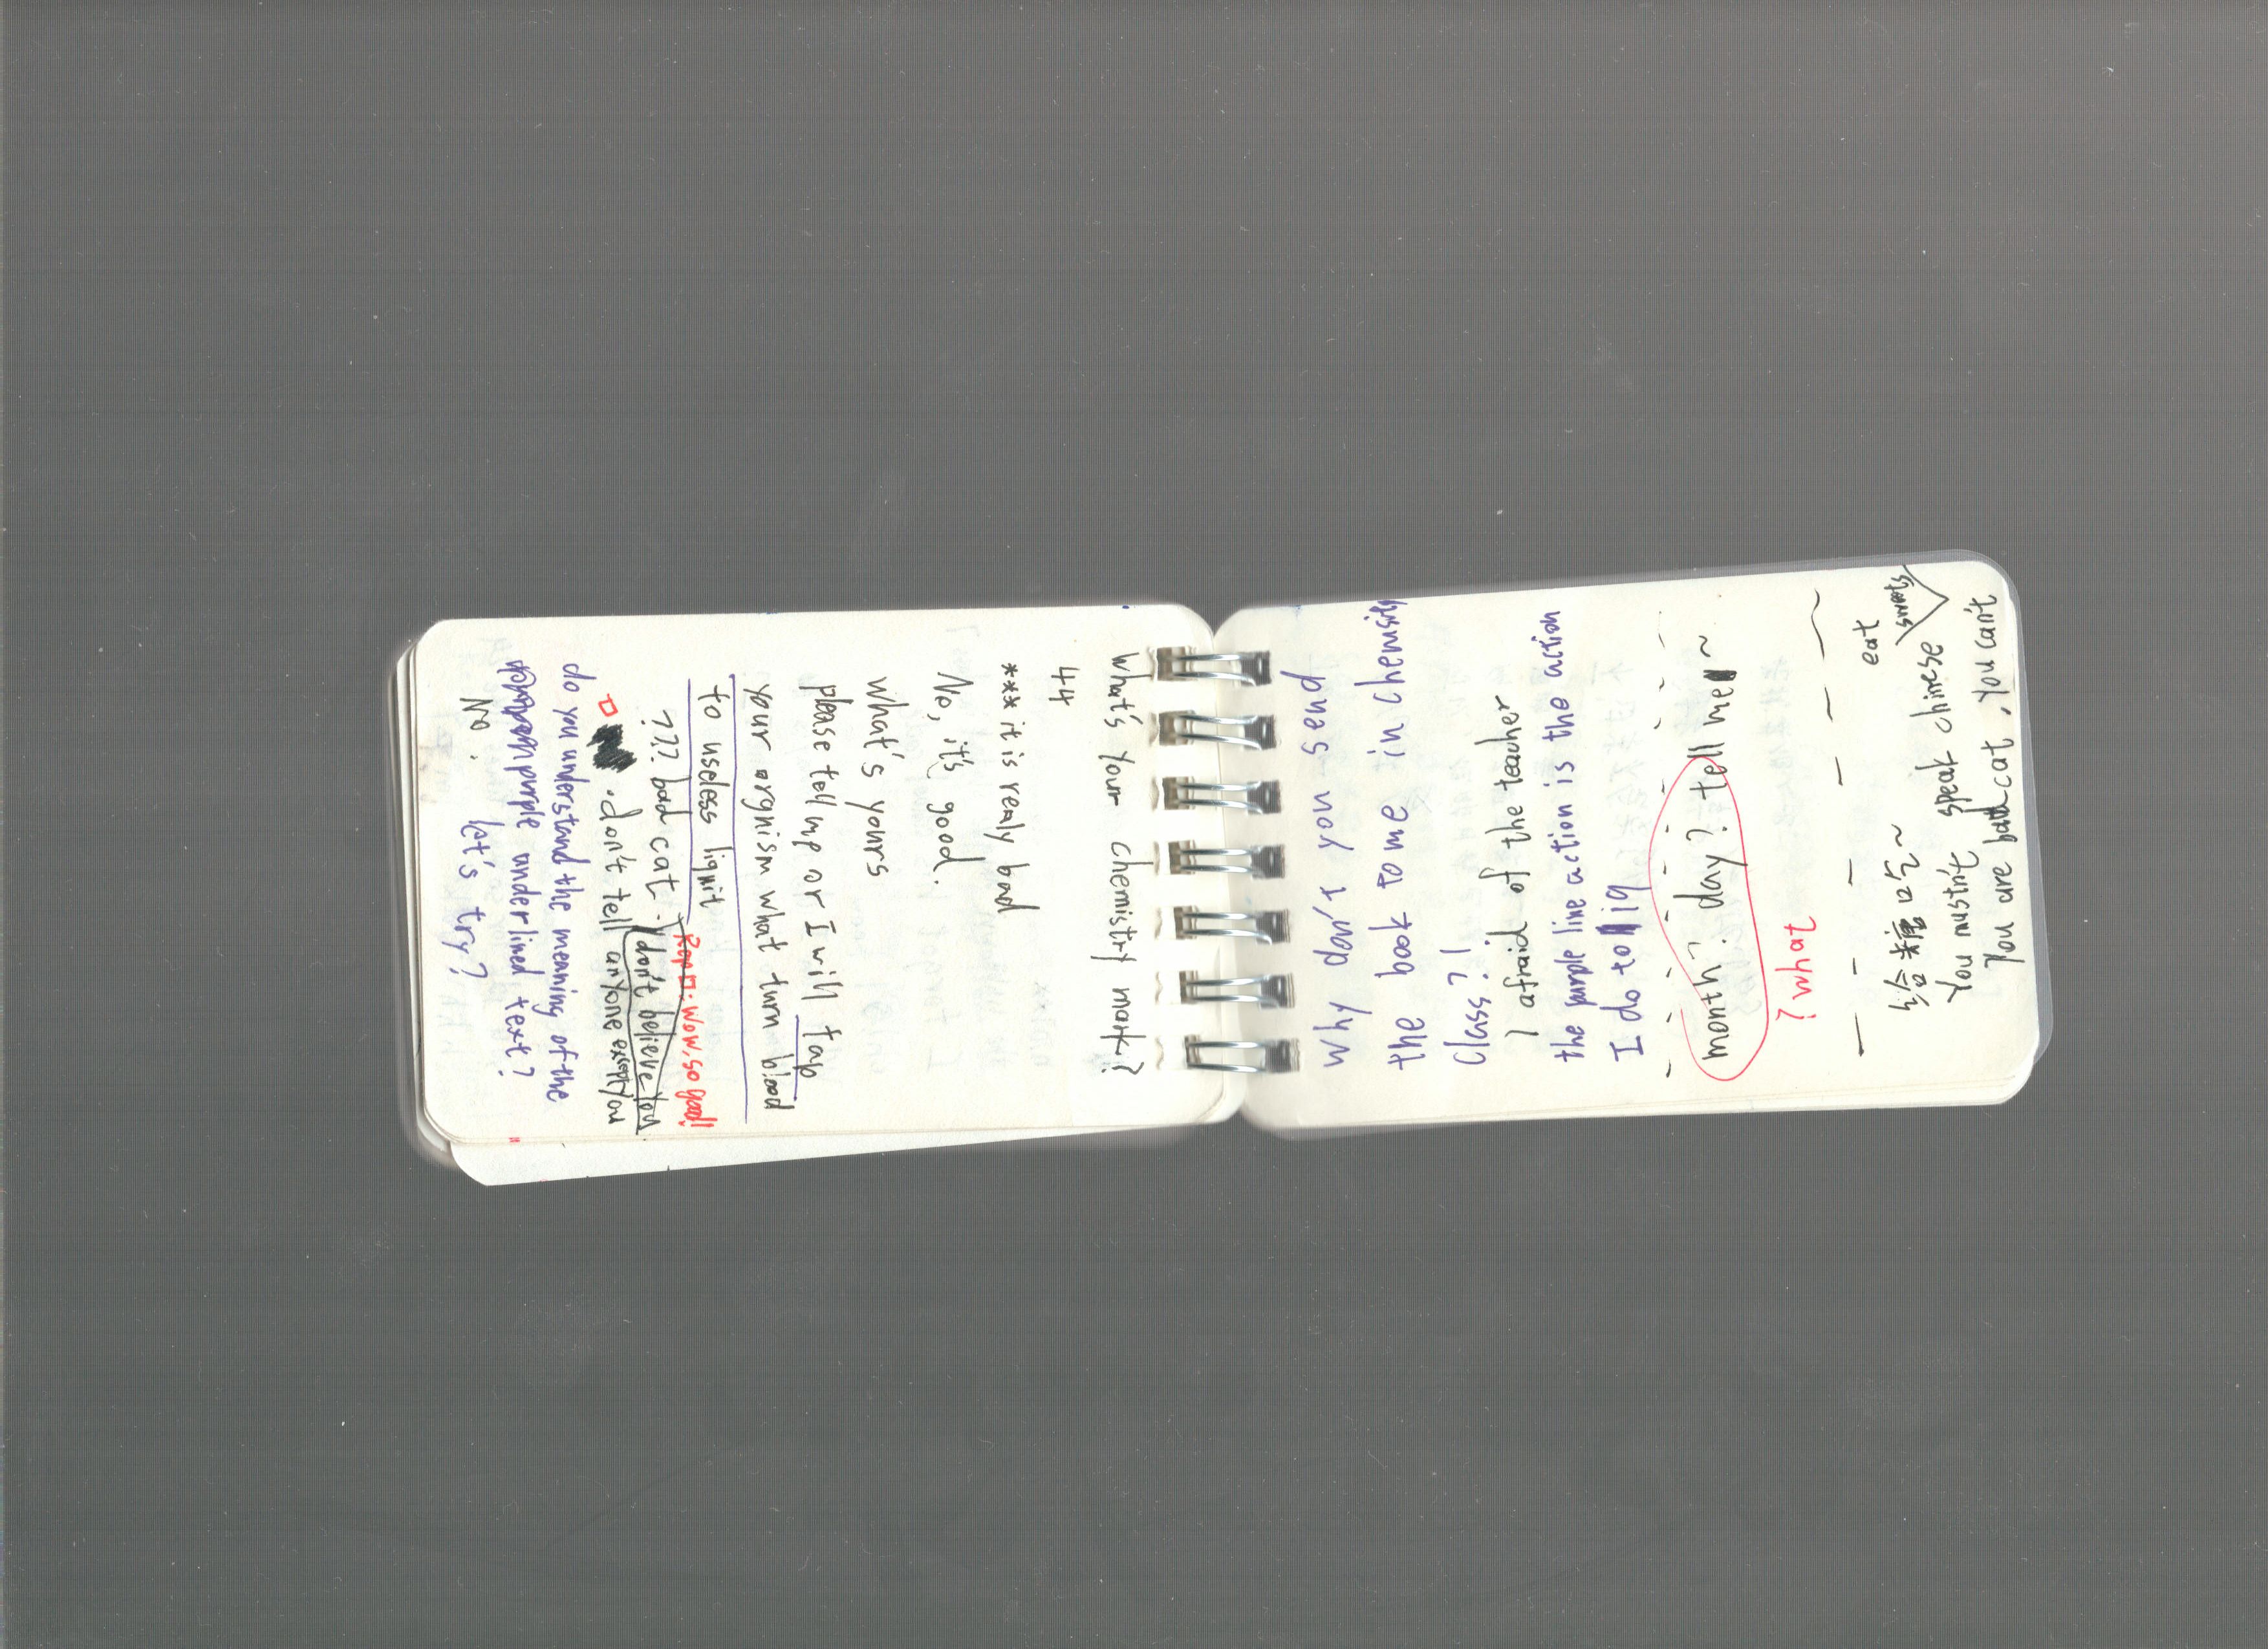 What's your chemistry mark?
44
*** it is realy bad
No, it's good.
What's yours
please tell me or I will tap
your orgnism what turn blood
to useless liqnit
Rep□: Wow, so good!
??? bad cat. don't believe you.
□ . don't tell anyone except you
do you understand the meaning of the
purple underlined text?
No. let's try?
Why don't you send
the book to me in chemistry
Class?!
I afraid of the teacher
the purple line action is the action
I do to 19
month? day? tell me~
? what
eat
给糖吃~
sweets
You mustn't speak chinese
You are bad cat. You can't